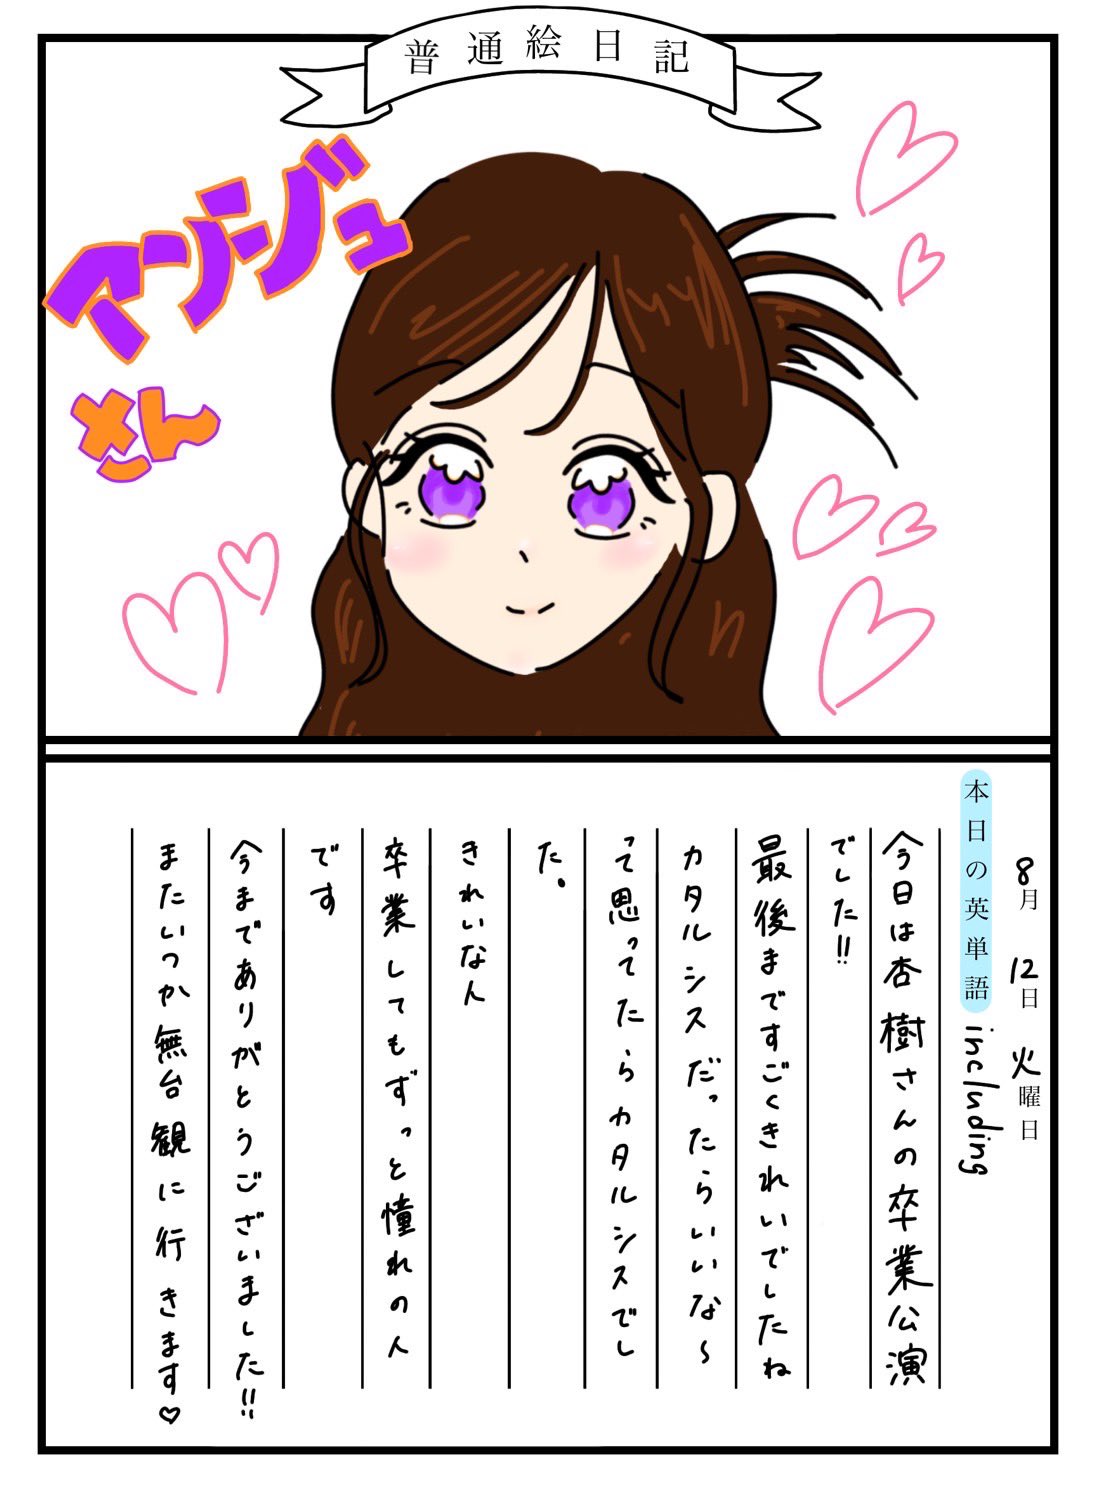 普通絵日記
アンジュ
さん
8月 12日 火曜日
本日の英単語 including
今日は杏樹さんの卒業公演
でした!!
最後まですごくきれいでしたね
カタルシスだったらいいな~
って思ってたらカタルシスでし
た。
きれいな人
卒業してもずっと憧れの人
です
今までありがとうございました!!
またいつか無台観に行きます♡